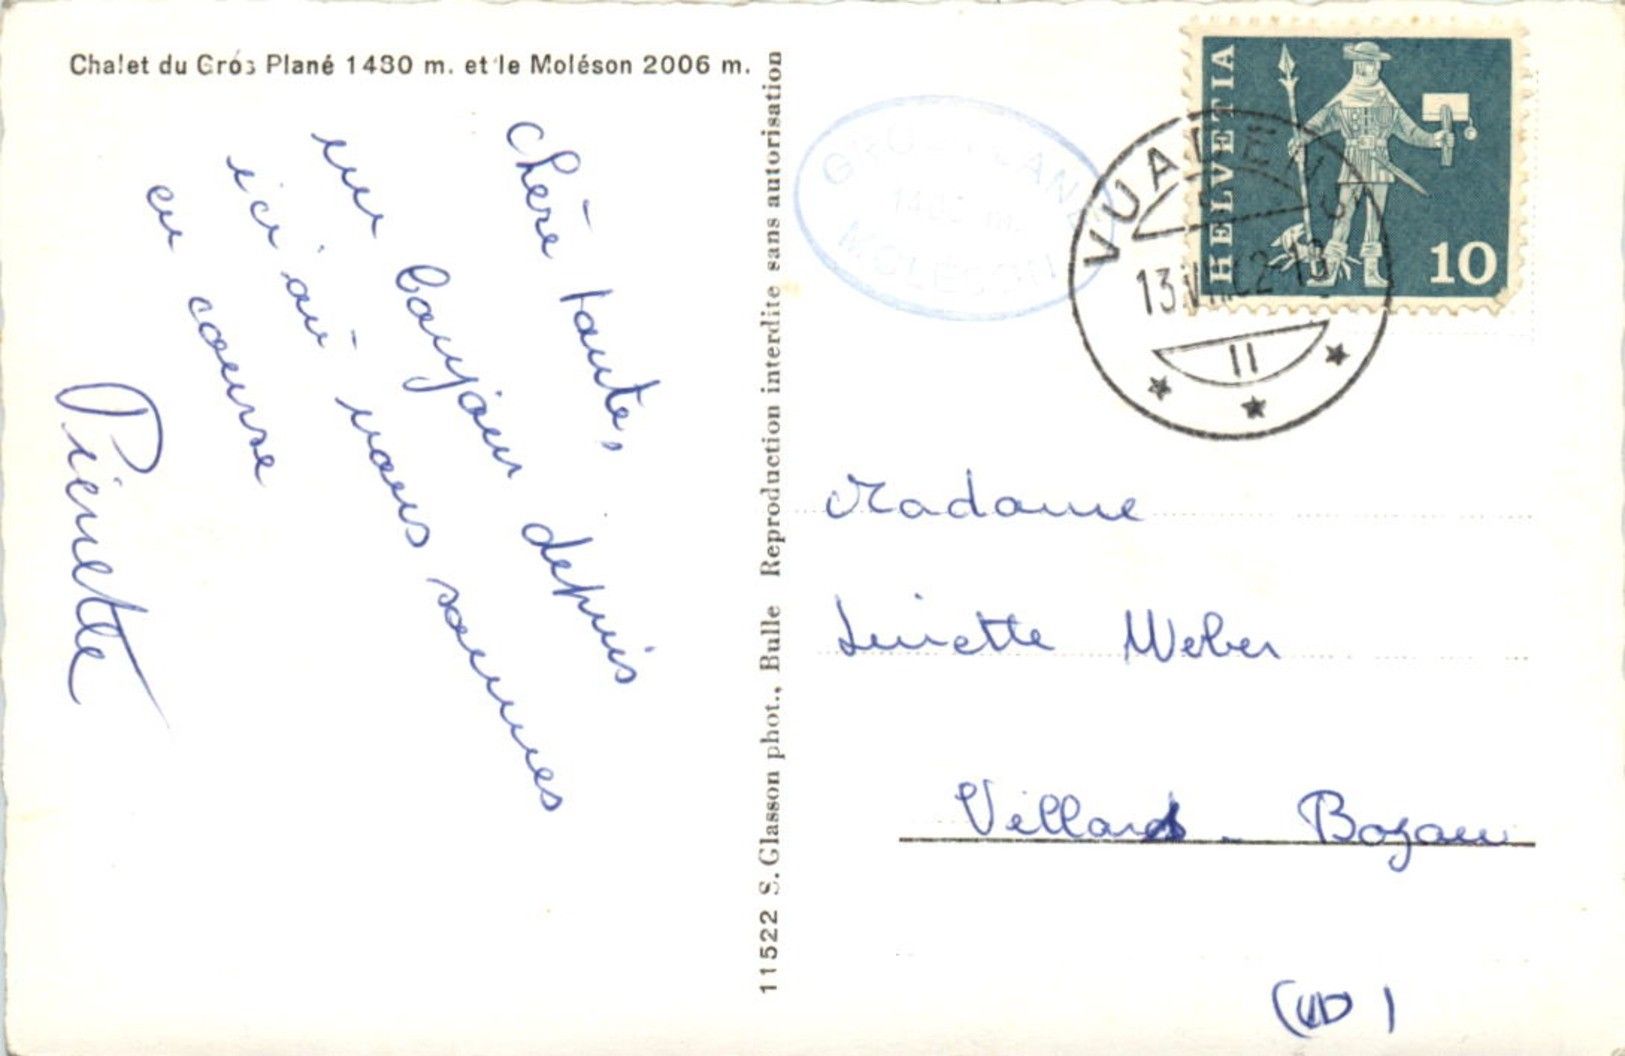 Chalet du Gros Plané 1480 m. et le Moléson 2006 m.
chère tante,
un bonjour depuis
ici où nous sommes
en course
Pierrette
11522 S. Glasson phot., Bulle Reproduction interdite sans autorisation
GROS PLANÉ
1480 m.
MOLÉSON
HELVETIA
10
VUADENS
13.VII.62-18
11
Madame
Weber
Villars - Bozon
(VD)